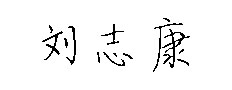 刘志康